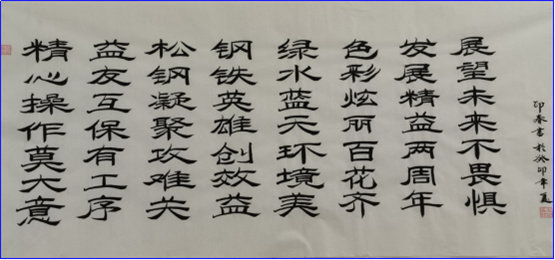 精心操作莫大意
益友互保有工序
松钢凝聚攻难关
钢铁英雄创效益
绿水蓝天环境美
色彩炫丽百花齐
发展精益两周年
展望未来不畏惧
印春书於癸卯年夏